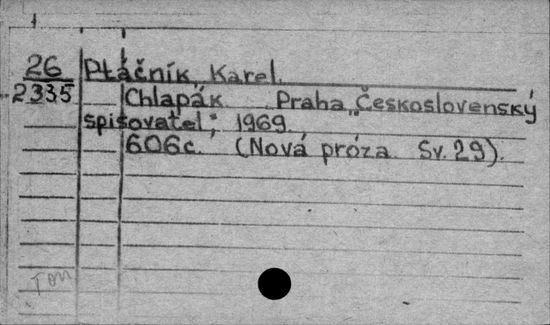 26 Ptáčník Karel.
2335 Chlapák Praha „Československý
spisovatel", 1969.
606c. (Nová próza. Sv. 29).
Ton